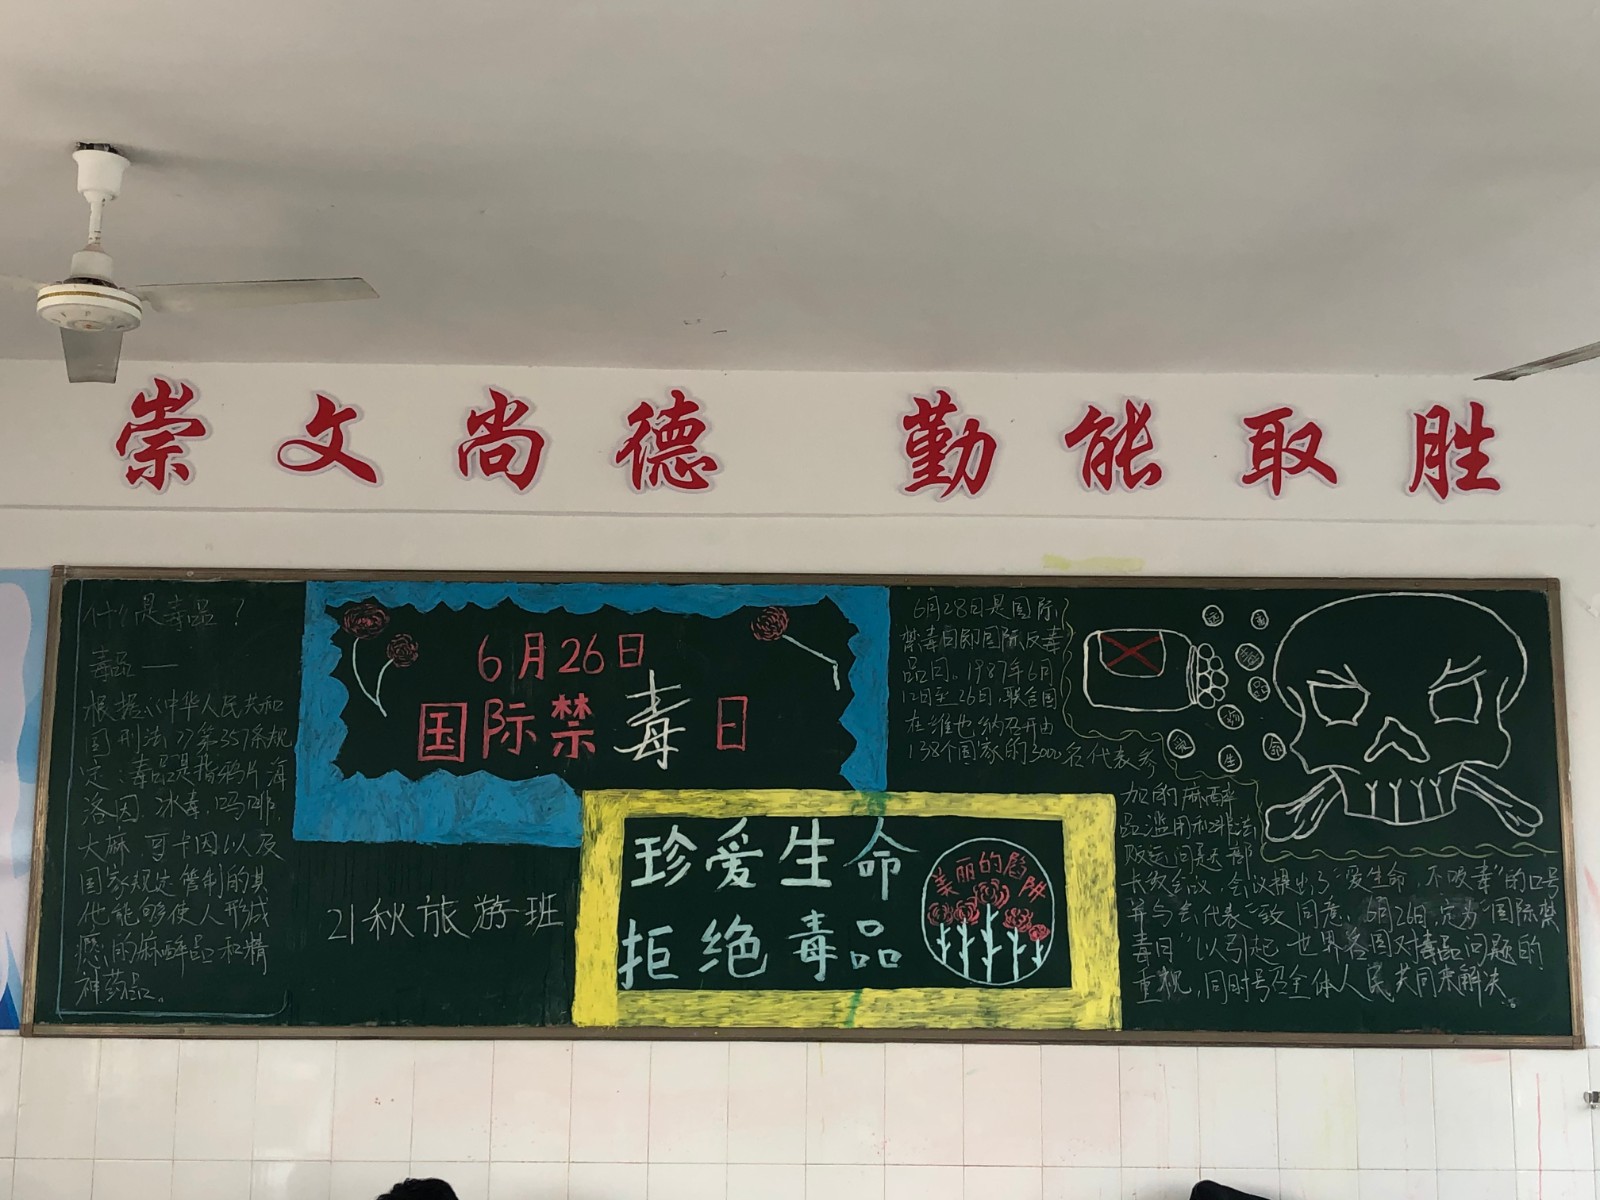 崇文尚德 勤能取胜
什么是毒品？
毒品——
根据《中华人民共和
国刑法》第357条规
定：毒品是指鸦片海
洛因、冰毒、吗啡、
大麻、可卡因以及
国家规定管制的其
他能够使人形成
瘾的麻醉品和精
神药品。
6月26日
国际禁毒日
21秋旅游班
珍爱生命
拒绝毒品
美丽的陷阱
6月28日是国际
禁毒日即国际反毒
品日。1987年6月
12日至26日,联合国
在维也纳召开由
138个国家的3000名代表参
加的麻醉
品滥用和非法
贩运问题部
长级会议，会议提出了"爱生命，不吸毒"的口号
并与会代表一致同意，6月26日定为"国际禁
毒日"以引起世界各国对毒品问题的
重视，同时号召全体人民共同来解决。
生
命